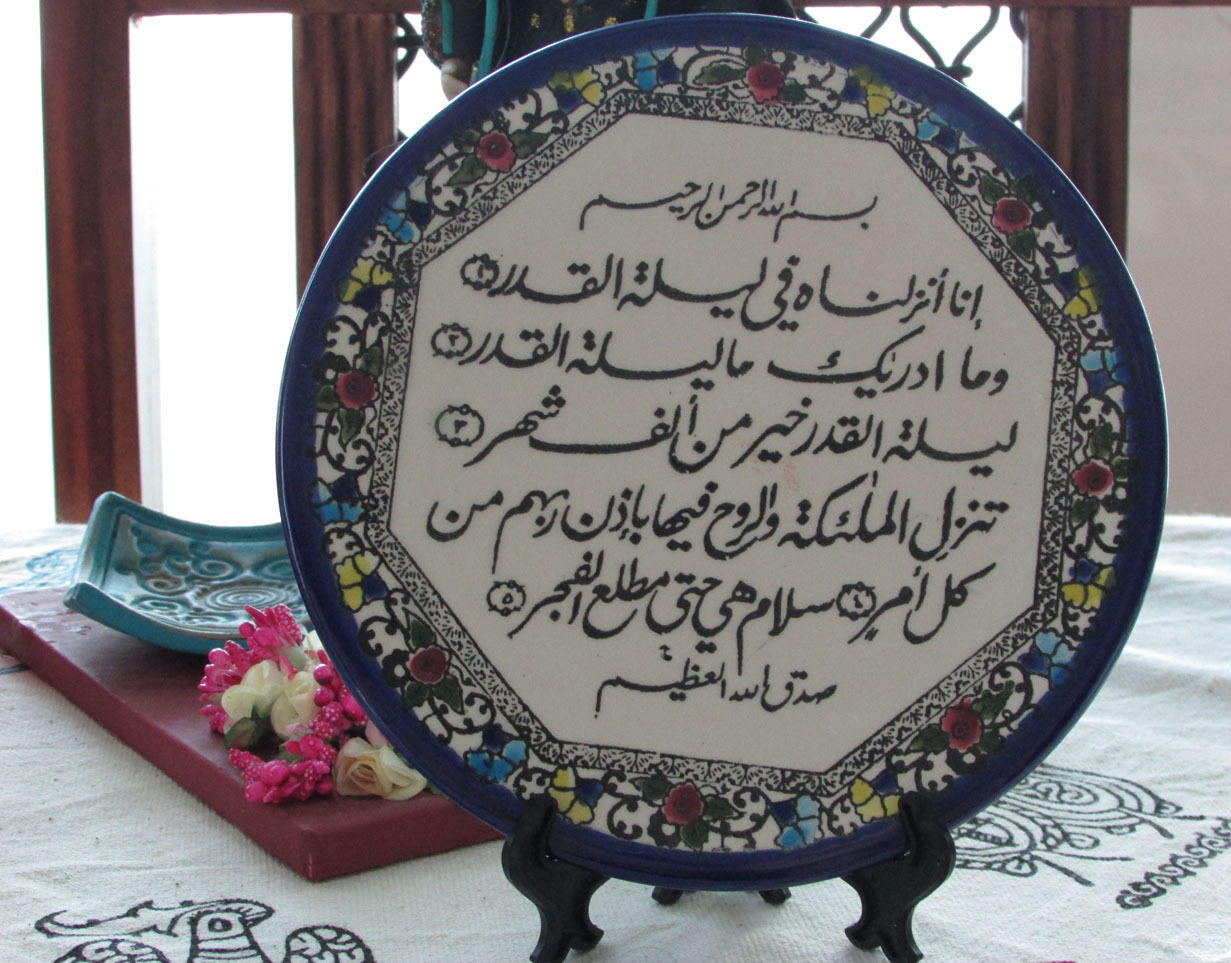 بسم الله الرحمن الرحيم
إنا أنزلناه في ليلة القدر ١
وما ادريك ما ليلة القدر ٢
ليلة القدر خير من ألف شهر ٣
تنزل الملئكة والروح فيها بإذن ربهم من
كل أمر ٤ سلام هي حتى مطلع الفجر ٥
صدق الله العظيم